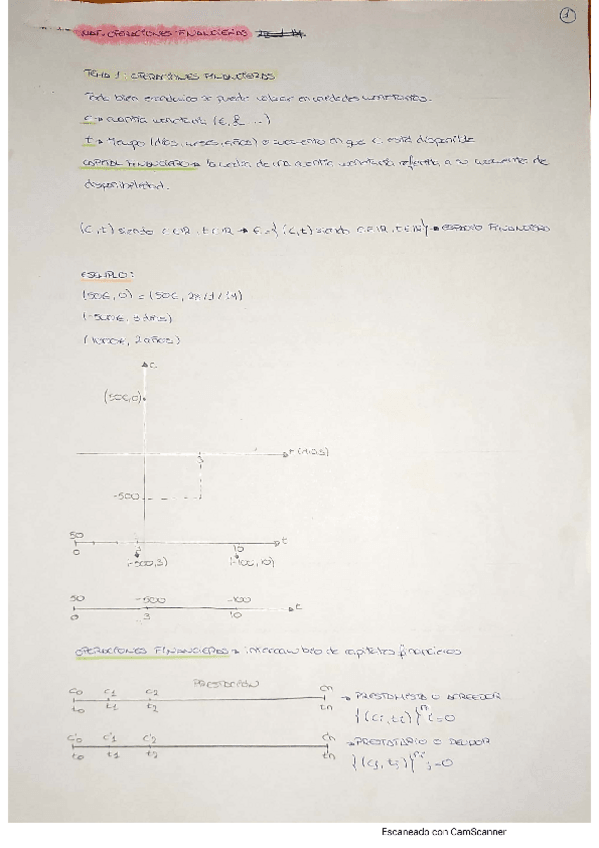 1
MAT. OPERACIONES FINANCIERAS
TEMA 1: OPERACIONES FINANCIERAS
Todo bien económico se puede valorar en unidades monetarias.
C → cuantía monetaria (€, $ ...)
t → tiempo (días, meses, años) o momento en que C está disponible
CAPITAL FINANCIERO → la medida de una cuantía monetaria referida a su momento de
disponibilidad.
(C, t) siendo C∈ℝ, t∈ℝ → E={(C,t) siendo C∈ℝ, t∈ℝ} → ESPACIO FINANCIERO
EJEMPLO:
(50€, 0) = (50€, 28/1/19)
(-500€, 3 años)
(1000€, 2 años)
C
(50€, 0)
t (AÑOS)
3
-500
50 10 t
0 (-500, 3) (-100, 10)
50 -500 -100 t
0 3 10
OPERACIONES FINANCIERAS → intercambio de capitales financieros
PRESTACIÓN
C0 C1 C2 Cn → PRESTAMISTA O ACREEDOR
t0 t1 t2 tn {(Ci, ti)}ⁿ i=0
C'0 C'1 C'2 C'n → PRESTATARIO O DEUDOR
t0 t1 t2 tn {(Cj, tj)} j=0
Escaneado con CamScanner